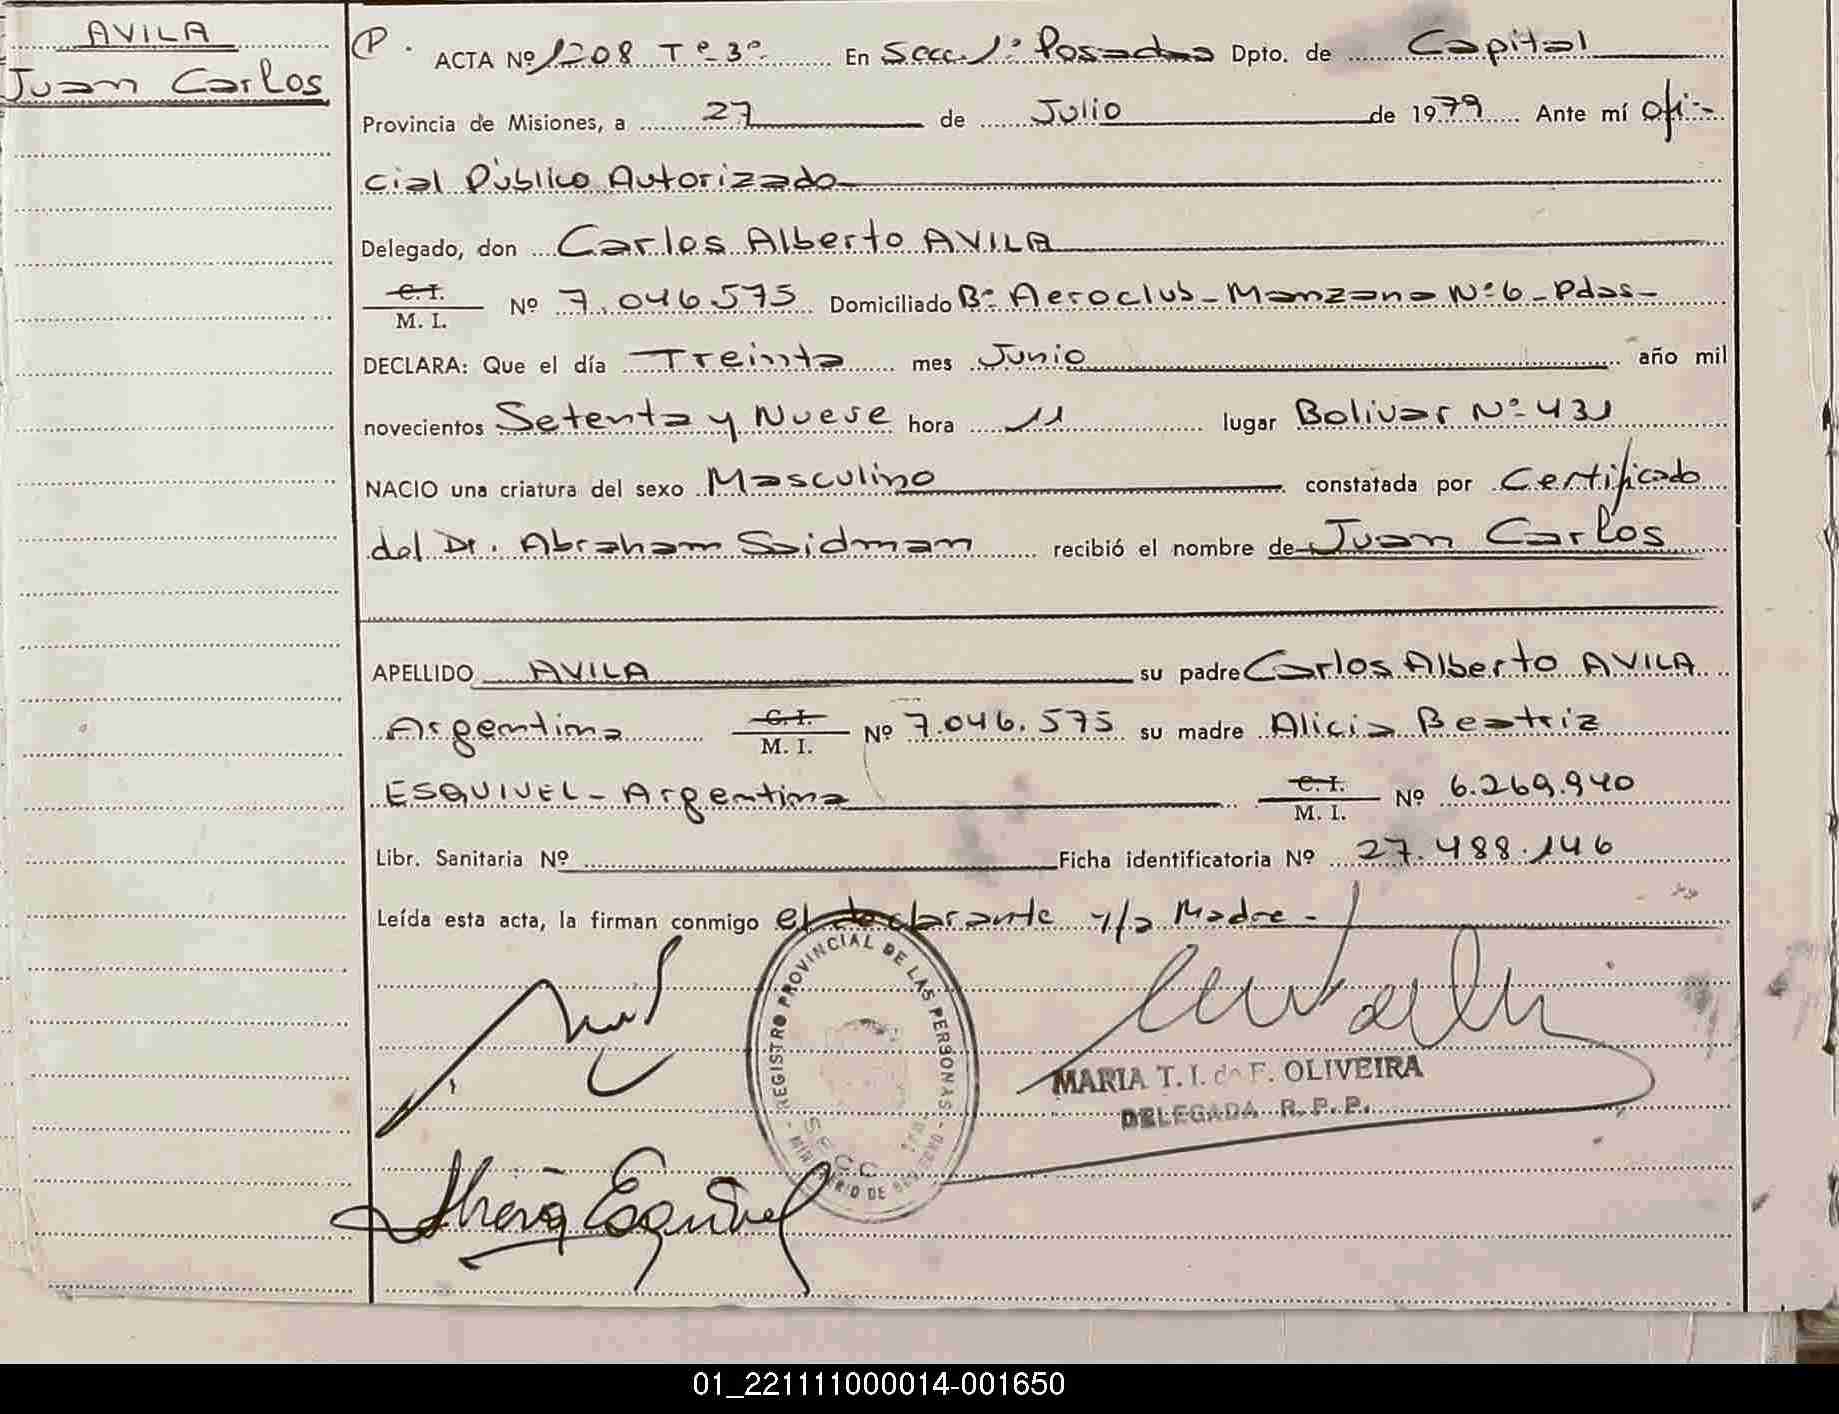 AVILA
Juan Carlos
P. ACTA Nº 1208 Tº 3º En Secc. 1º Posadas Dpto. de Capital
Provincia de Misiones, a 27 de Julio de 1979 Ante mí Ofi-
cial Público Autorizado
Delegado, don Carlos Alberto AVILA
C. I.
M. I. Nº 7.046.575 Domiciliado Bº Aeroclub - Manzana Nº 6 - Pdas -
DECLARA: Que el día Treinta mes Junio año mil
novecientos Setenta y Nueve hora 11 lugar Bolivar Nº 431
NACIO una criatura del sexo Masculino constatada por Certificado
del Dr. Abraham Saidman recibió el nombre de Juan Carlos
APELLIDO AVILA su padre Carlos Alberto AVILA
Argentina C. I. M. I. Nº 7.046.575 su madre Alicia Beatriz
ESQUIVEL - Argentina C. I. M. I. Nº 6.269.940
Libr. Sanitaria Nº Ficha identificatoria Nº 27.488.146
Leída esta acta, la firman conmigo el declarante y/a Madre -
REGISTRO PROVINCIAL DE LAS PERSONAS - MINISTERIO DE GOBIERNO -
SECC.
MARIA T. I. de F. OLIVEIRA
DELEGADA R. P. P.
Esquivel
01_221111000014-001650